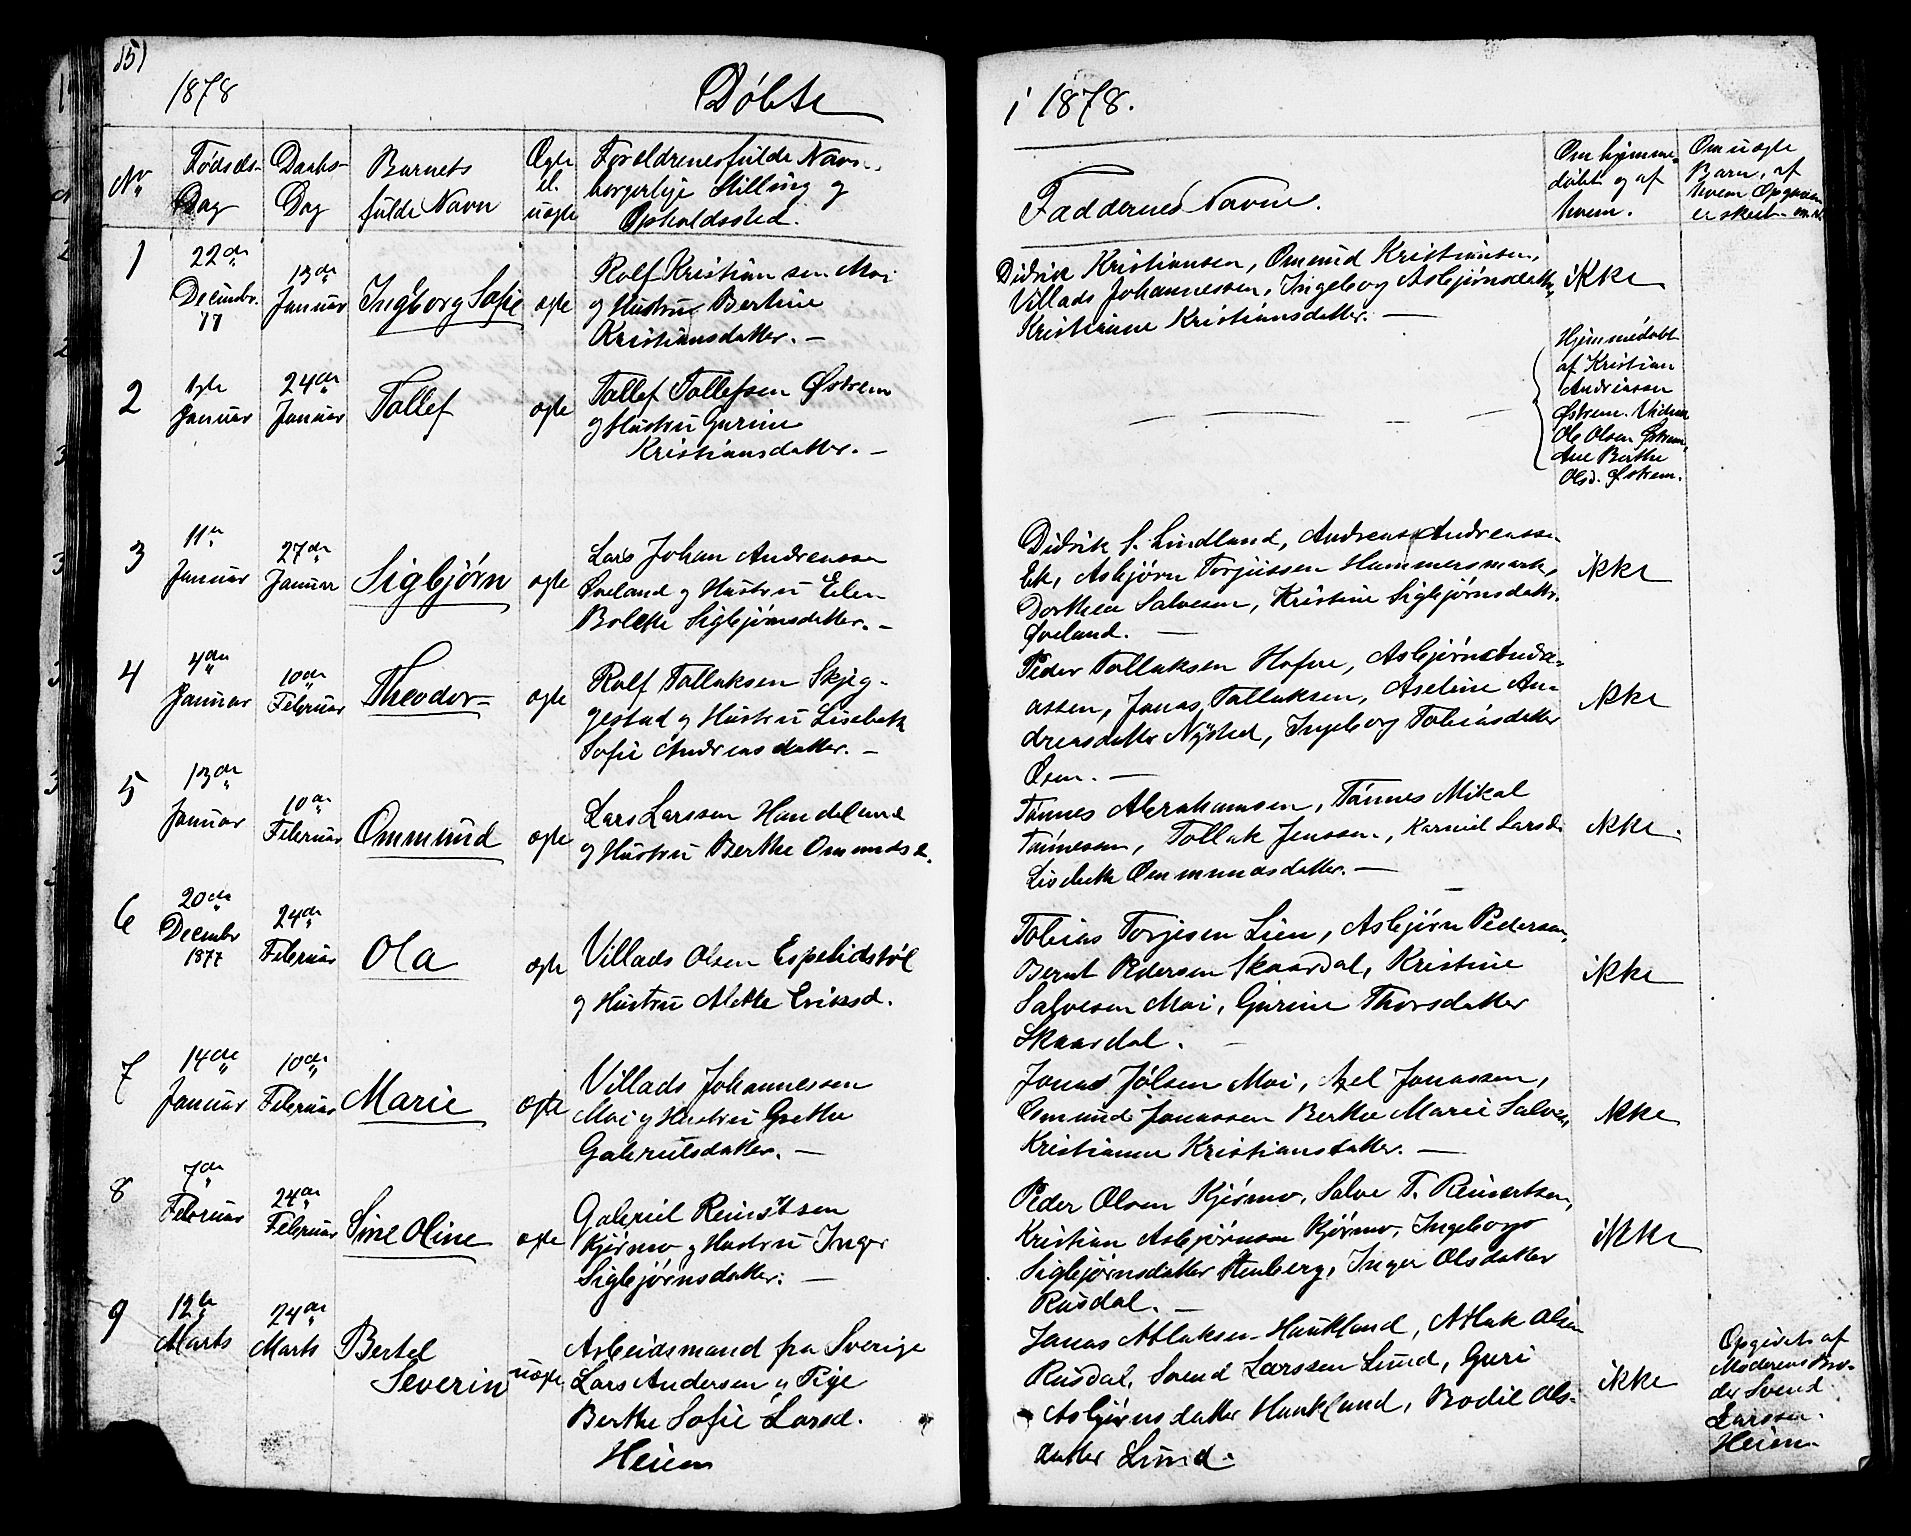 151
1878 Døbte
No Fødsels- Dag
Daabs- Dag
Barnets fulde Navn
Ægte el. uægte
Forældrenes fulde Navn, borgerlige Stilling og Opholdssted.
1
22de Decembr. 77
13de Januar
Ingborg Sofie
ægte
Rolf Kristiansen Moi
og Hustru Bertine
Kristiansdatter. —
2
Januar
24de Januar
Tollef
ægte
Tollef Tollefsen Østrem
og Hustru Gurine
Kristiansdatter. —
3
11te Januar
27de Januar
Sigbjørn
ægte
Lars Johan Andreassen
Øveland og Hustru Elen
Bolette Sigbjørnsdatter. —
4
4de Januar
10de Februar
Theodor
ægte
Rolf Tollaksen Skjeg-
gestad og Hustru Lisebet
Sofie Andreasdatter. —
5
13de Januar
10de Februar
Ommund
ægte
Lars Larssen Handeland
og Hustru Berthe Omundsd.
6
20de Decembr 1877
24de Februar
Ola
ægte
Villads Olsen Espelidstøl
og Hustru Mette Eriksd.
7
14de Januar
10de Februar
Marie
ægte
Villads Johannessen
Moi og Hustru Grethe
Gabrielsdatter. —
8
7de Februar
24de Februar
Sine Oline
ægte
Gabriel Reinertsen
Kjørmo og Hustru Inger
Sigbjørnsdatter. —
9
12te Marts
24de Marts
Bertel
Severin
uægte
Arbeidsmand fra Sverige
Lars Andersen og Pige
Berthe Sofie Larsd.
Heiem
i 1878.
Faddernes Navne.
Om hjemme-
døbt og af
hvem.
Om uægte
Barn, af
hvem Opgaven
er skeet
Didrik Kristiansen, Omund Kristiansen,
Villads Johannessen, Ingeborg Asbjørnsdatter,
Kristianne Kristiansdatter. —
ikke
— — —
Hjemmedøbt
af Kristian
Andreassen
Østrem. Vidner
Ole Olsen Østrem,
Ane Berthe
Olsd. Østrem.
Didrik S. Lindland, Andreas Andreassen
Eik, Asbjørn Torjussen Hammersmark,
Dorthea Salvesen, Kristine Sigbjørnsdatter
Øveland. —
ikke
Peder Tollaksen Hofne, Asbjørn Andre-
assen, Jonas Tollaksen, Aseline An-
dreasdatter Nysted, Ingeborg Tobiasdatter
Osen. —
ikke
Tønnes Abrahamsen, Tønnes Mikal
Tønnesen, Tollak Jenssen, Karneel Larsd.
Lisebeth Ommundsdatter. —
ikke.
Tobias Torjesen Lien, Asbjørn Pedersen,
Bernt Pedersen Skaardal, Kristine
Salvesen Moi, Gurine Thorsdatter
Skaardal. —
ikke
Jonas Jølsen Moi, Axel Jonassen,
Omund Jonassen Berthe Marie Salves.
Kristianne Kristiansdatter. —
ikke
Peder Olsen Kjørmo, Salve T. Reinertsen,
Kristian Asbjørnsen Kjørmo, Ingeborg
Sigbjørnsdatter Stenberg, Inger Olsdatter
Rusdal. —
ikke
Jonas Atlaksen Haukland, Atlak Olsen
Rusdal, Svend Larssen Lund, Guri
Asbjørnsdatter Haukland, Bodil Ols-
datter Lund.
ikke
Opgivet af
Moderens Bro-
der Svend
Larssen
Heiem